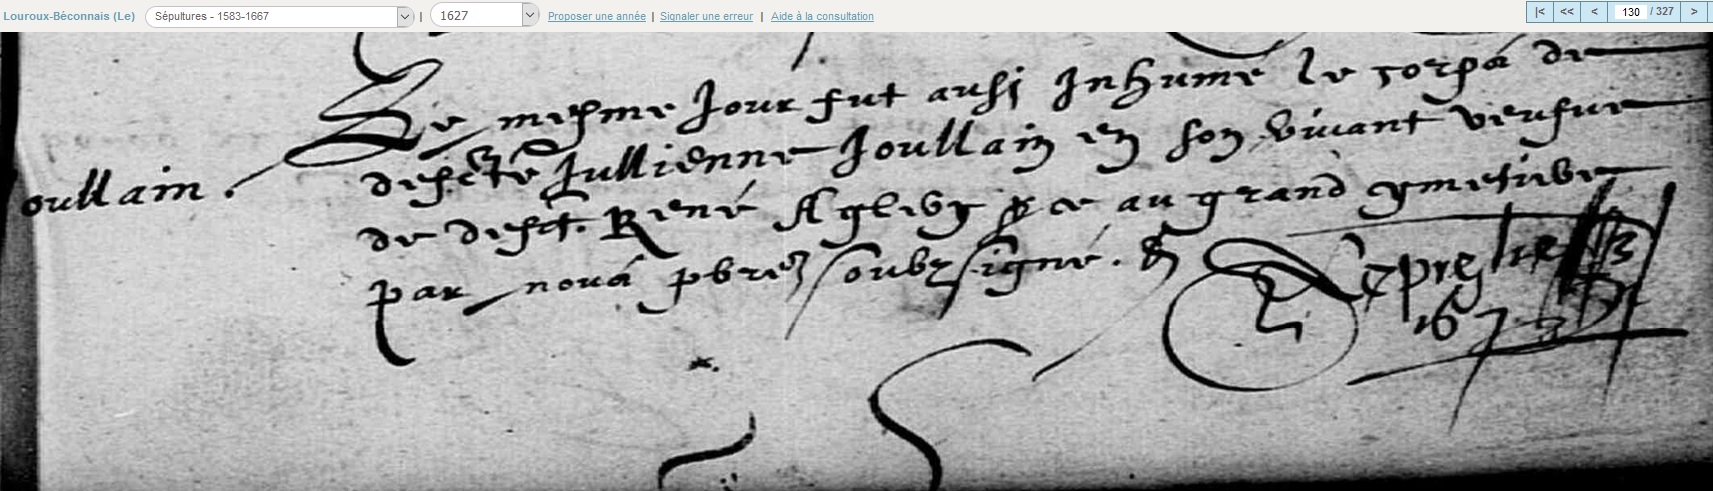 Louroux-Béconnais (Le) Sépultures - 1583-1667 | 1627 Proposer une année | Signaler une erreur | Aide à la consultation |< << < 130 / 327 >
Le mesme Jour fut aussi Inhumé le corps de
oullain.
defcte Jullienne Joullain en son vivant veufue
de defct. René par ce au grand cymetiere
par nous pbres soubzsigné.